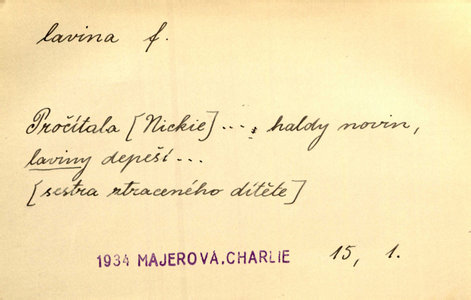 lavina f.
Pročítala [Nickie] ... , haldy novin,
laviny depeší ...
[sestra ztraceného dítěte]
1934 MAJEROVÁ, CHARLIE 15, 1.